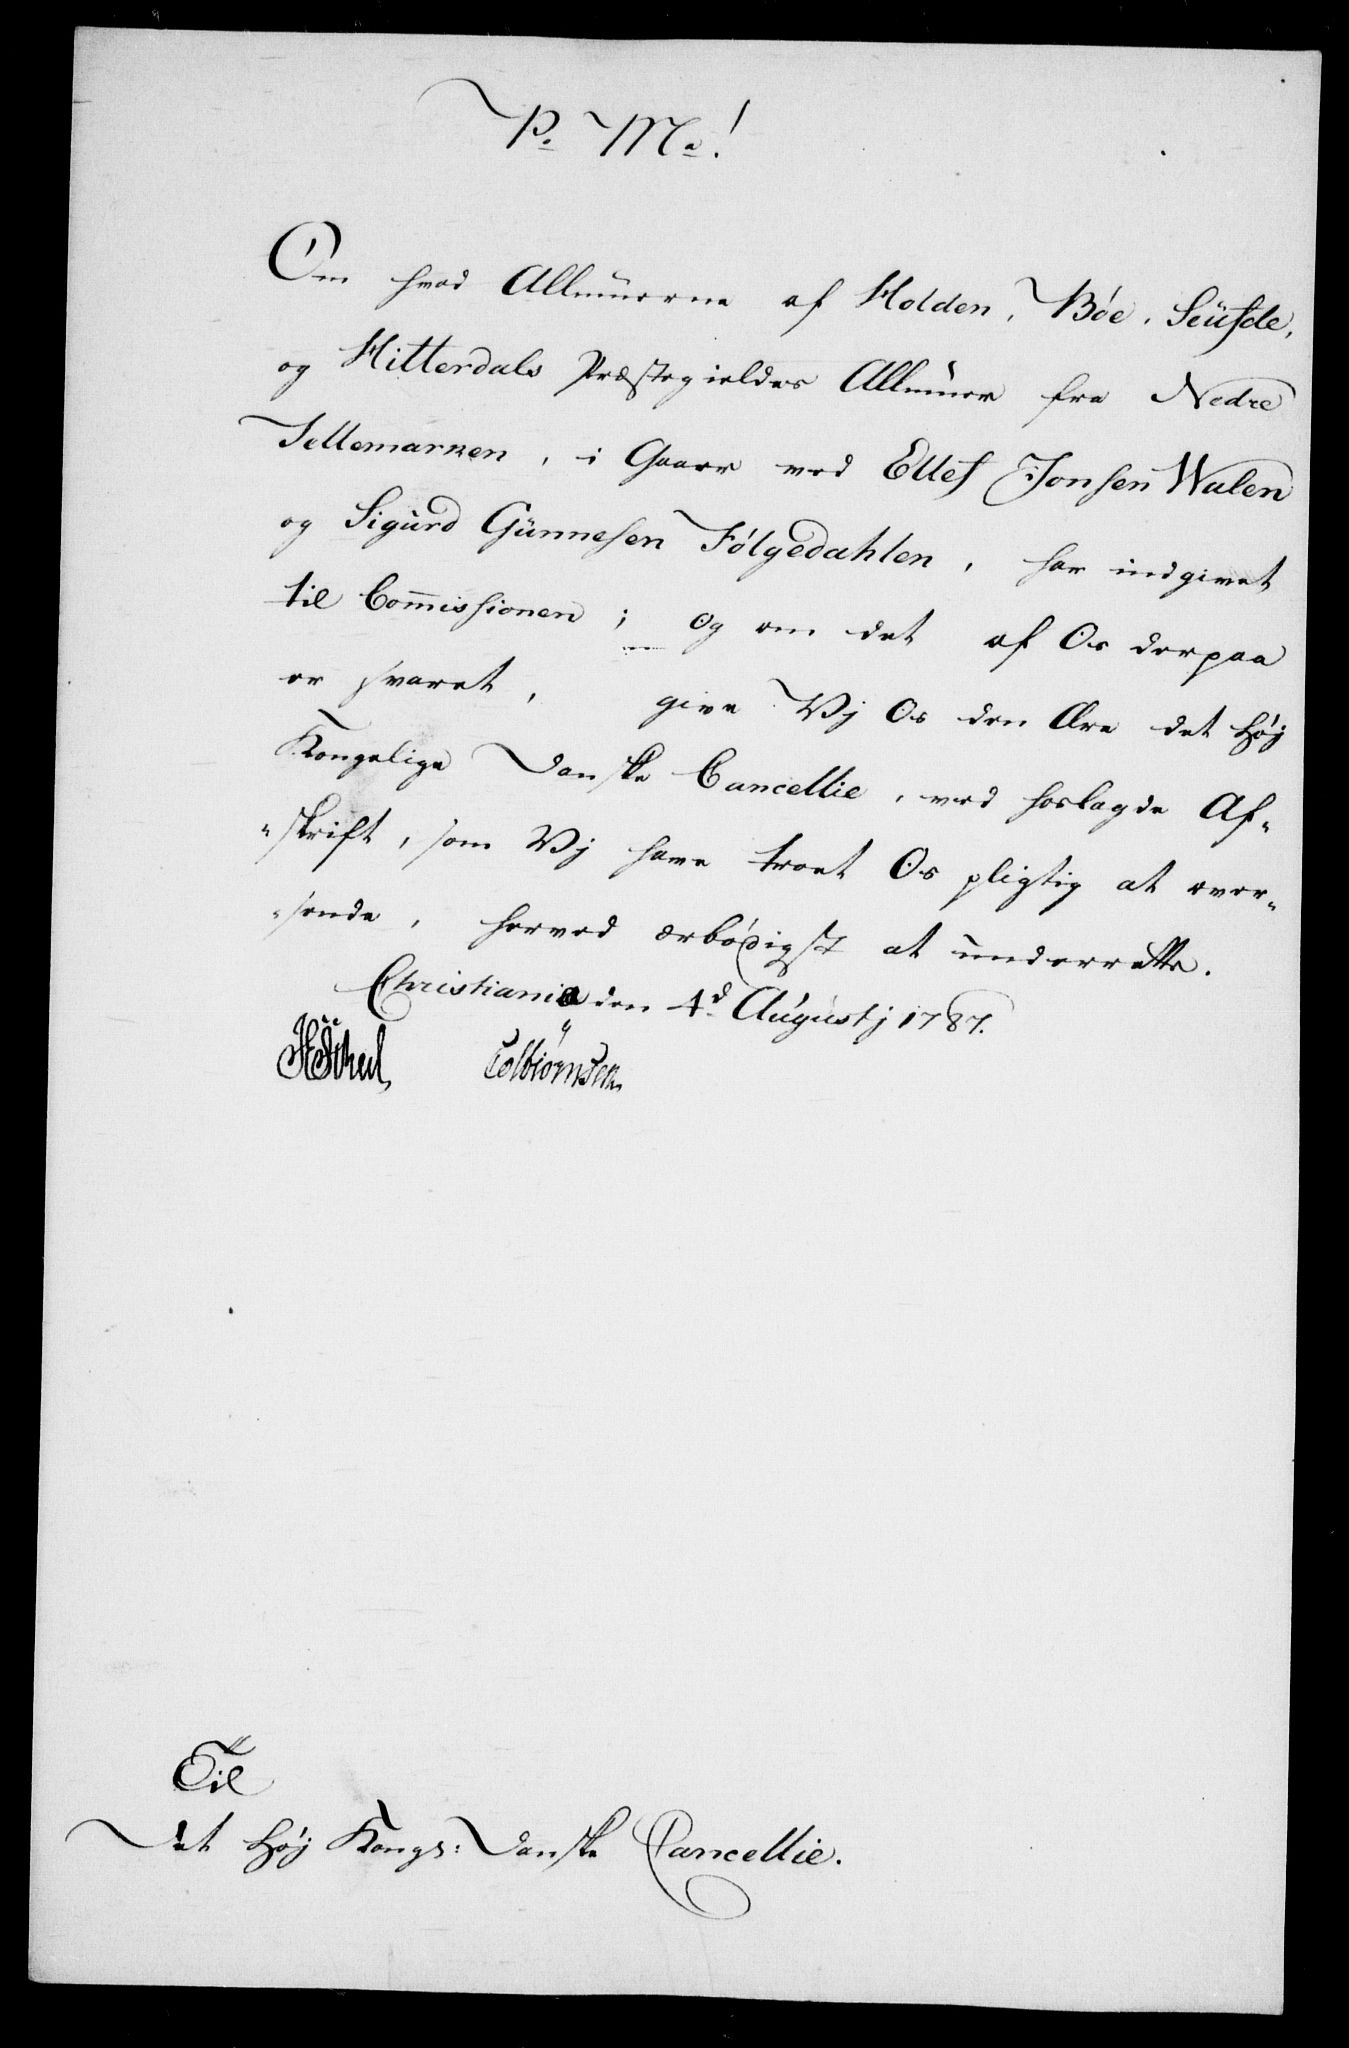 P. M.!
Om hvad Allmuerne af Holden, Bøe, Seüfde,
og Hitterdals Præstegieldes Allmuer fra Nedre
Tellemarken, i Gaaer ved Ellef Jonsen Walen
og Sigurd Gunnesen Følgedahlen, har indgivet
til Commissionen; og om det af Os derpaa
er svaret, give Vj Os den Ære det høj
Kongelige Danske Cancellie, ved hoslagde Af-
-skrift, som Vj have troet Os pligtig at over-
-sende, herved ærbødigst at underrætte.
Christiania den 4d Augustj 1787.
Colbiørnsen.
Til
Det høj Kongs: Danske Cancellie.